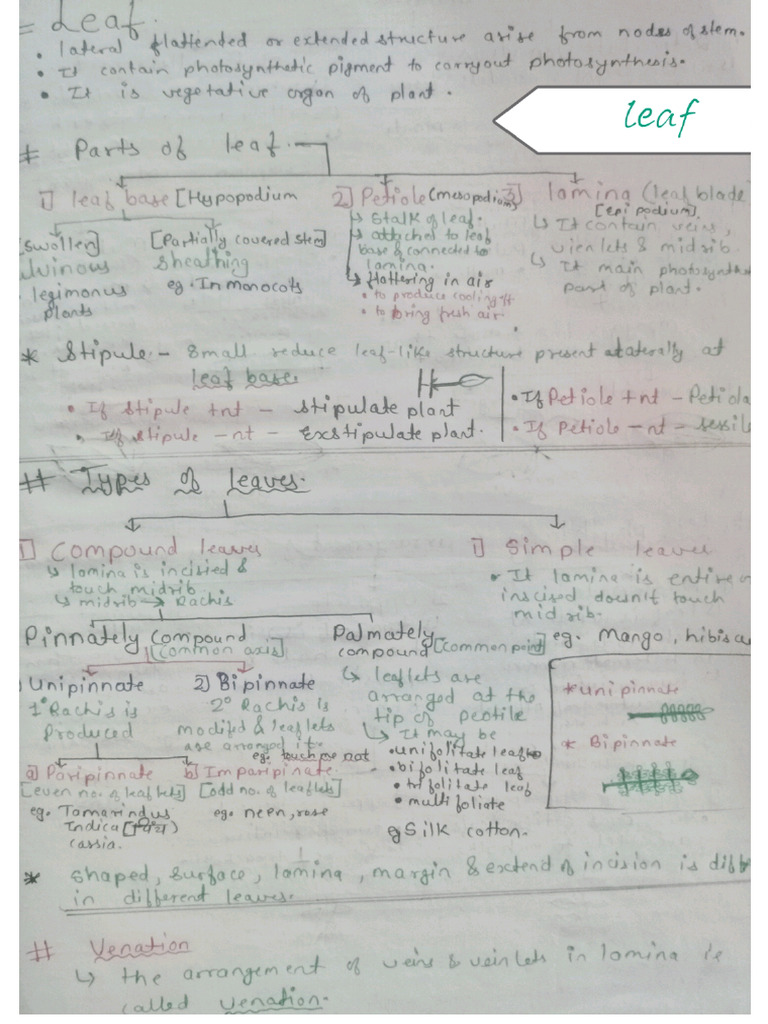 = Leaf.
• lateral flattended or extended structure arise from nodes of stem.
• It contain photosynthetic pigment to carryout photosynthesis.
• It is vegetative organ of plant.
leaf
# Parts of leaf.
1) leaf base [Hypopodium
[swollen]
[Partially covered stem]
sheathing
eg. In monocots
legimonus
plants
2) Petiole (mesopodium)
↳ Stalk of leaf.
↳ attached to leaf
base & connected to
lamina.
↳ flottering in air
• to produce cooling
• to bring fresh air.
3) lamina (leaf blade
[epi podium].
↳ It contain veins,
vienlets & midrib.
↳ It main photosynthe
part of plant.
* Stipule - Small reduce leaf-like structure present at laterally at
leaf base.
• If Stipule +nt - Stipulate plant
• If stipule -nt - Exstipulate plant.
• If Petiole +nt - Petiola
• If Petiole -nt - sessile
# Types of leaves.
1) Compound leaves
↳ lamina is incisied &
touch midrib
↳ midrib → Rachis
1) Simple leaves
• It lamina is entire o
inscised doesn't touch
midrib.
eg. Mango, hibiscu
Pinnately compound
[common axis]
Palmately
compound [common point]
↳ leaflets are
arranged at the
tip of peotile
↳ It may be
• unifolitate leaf
• bifolitate leaf
• trifolitate leaf
• multifoliate
eg Silk cotton.
Unipinnate
1° Rachis is
Produced
2) Bipinnate
2° Rachis is
modified & leaflets
are arranged it.
eg. touch me not
a) Paripinnate
[even no. of leaflets]
eg. Tamarindus
Indica
cassia.
b) Imparipinate.
[odd no. of leaflets]
eg. neen, rose
* uni pinnate
* Bipinnate
* shaped, surface, lamina, margin & extend of incision is diff
in different leaves.
# Venation
↳ the arrangement of veins & veinlets in lamina is
called venation.